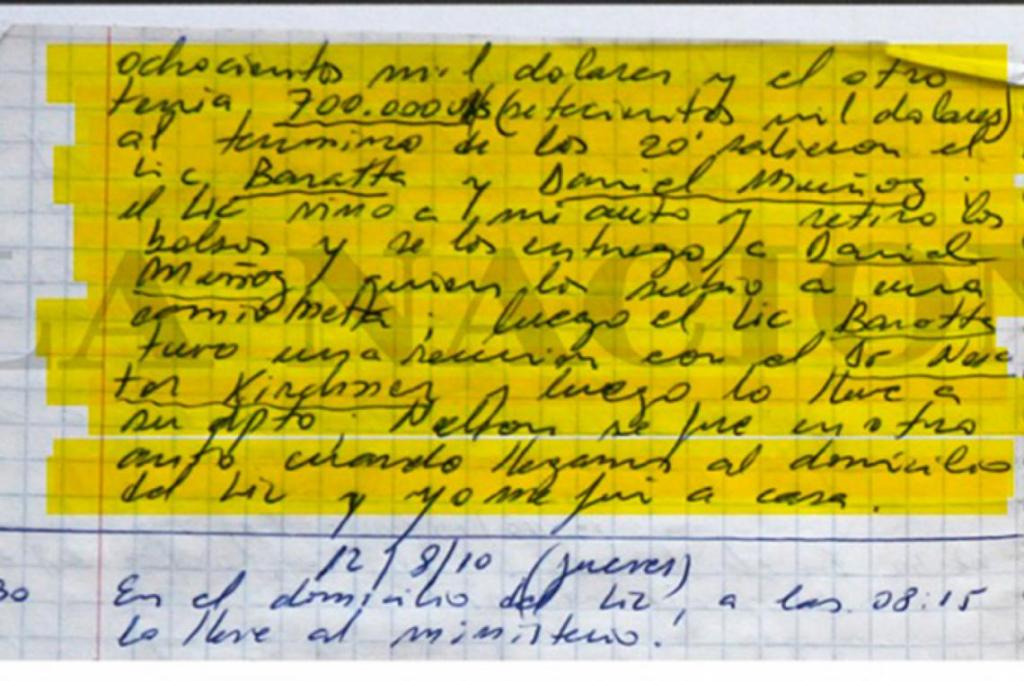 ochocientos mil dolares y el otro
tenia 700.000 u$s (setecientos mil dolares)
al termino de los 20' salieron el
Lic Baratta y Daniel Muñoz.
el Lic vino a mi auto y retiro los
bolsos y se los entrego a Daniel
Muñoz, quien los subio a una
camioneta; luego el Lic Baratta
tuvo una reunion con el Dr Nes
tor Kirchner y luego lo lleve a
su dpto. Nelson se fue en otro
auto cuando llegamos al domicilio
del Lic y yo me fui a casa.
12/8/10 (jueves)
30 En el domicilio del Lic, a las 08:15
lo lleve al ministerio.
LA NACION